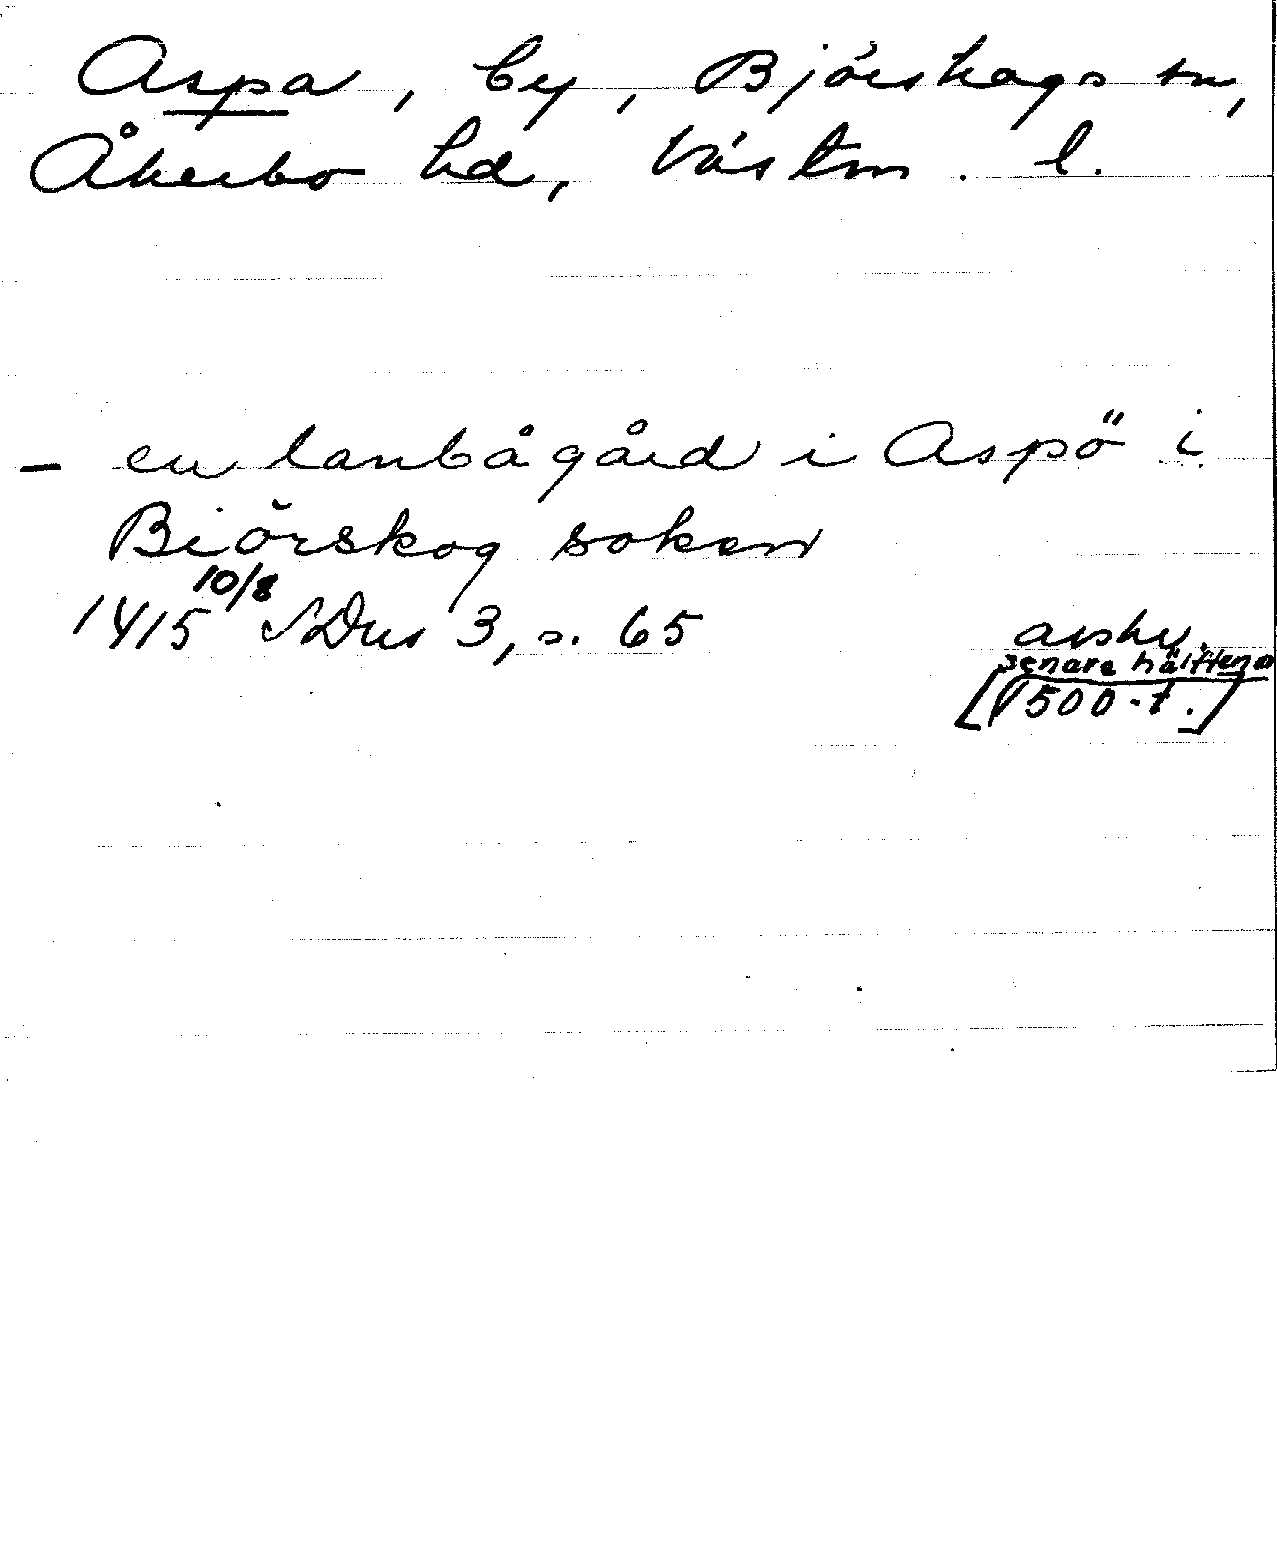 Aspa, by, Björskogs sn,
Åkerbo hd, Västm. l.
- en lanbågård i Aspö i
Biörskog soken
1415 10/8 SDns 3, s. 65
avskr.
senare hälften a
[1500-t.]